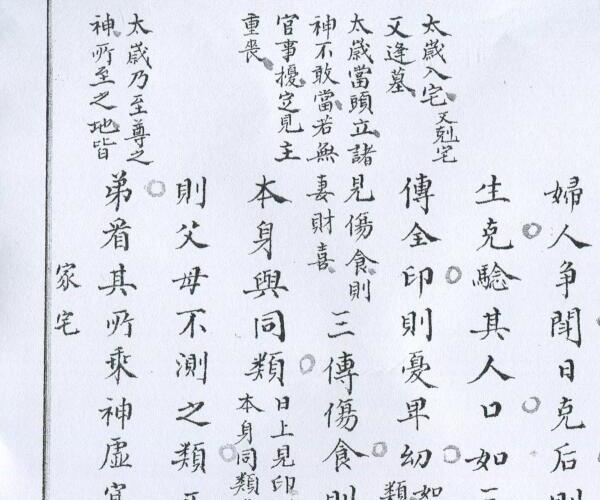 太歲入宅又剋宅
又逢墓
太歲當頭立諸
神不敢當若無
官事擾定見主
重喪
太歲乃至尊之
神所至之地皆
婦人争日克后則
生克騐其人口如
傳全印則憂卑幼如
類
見傷食則
妻財喜
三傳傷食則
本身與同類日上見印
本身同類
則父母不測之類
弟看其所乘神虛
家宅